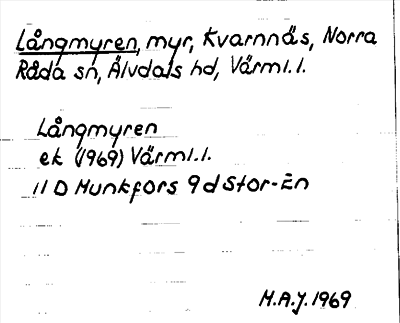 Långmyren, myr, Kvarnnäs, Norra
Råda sn, Älvdals hd, Värml.l.
Långmyren
ek (1969) Värml.l.
11 D Munkfors 9 d Stor-En
M.A.J. 1969